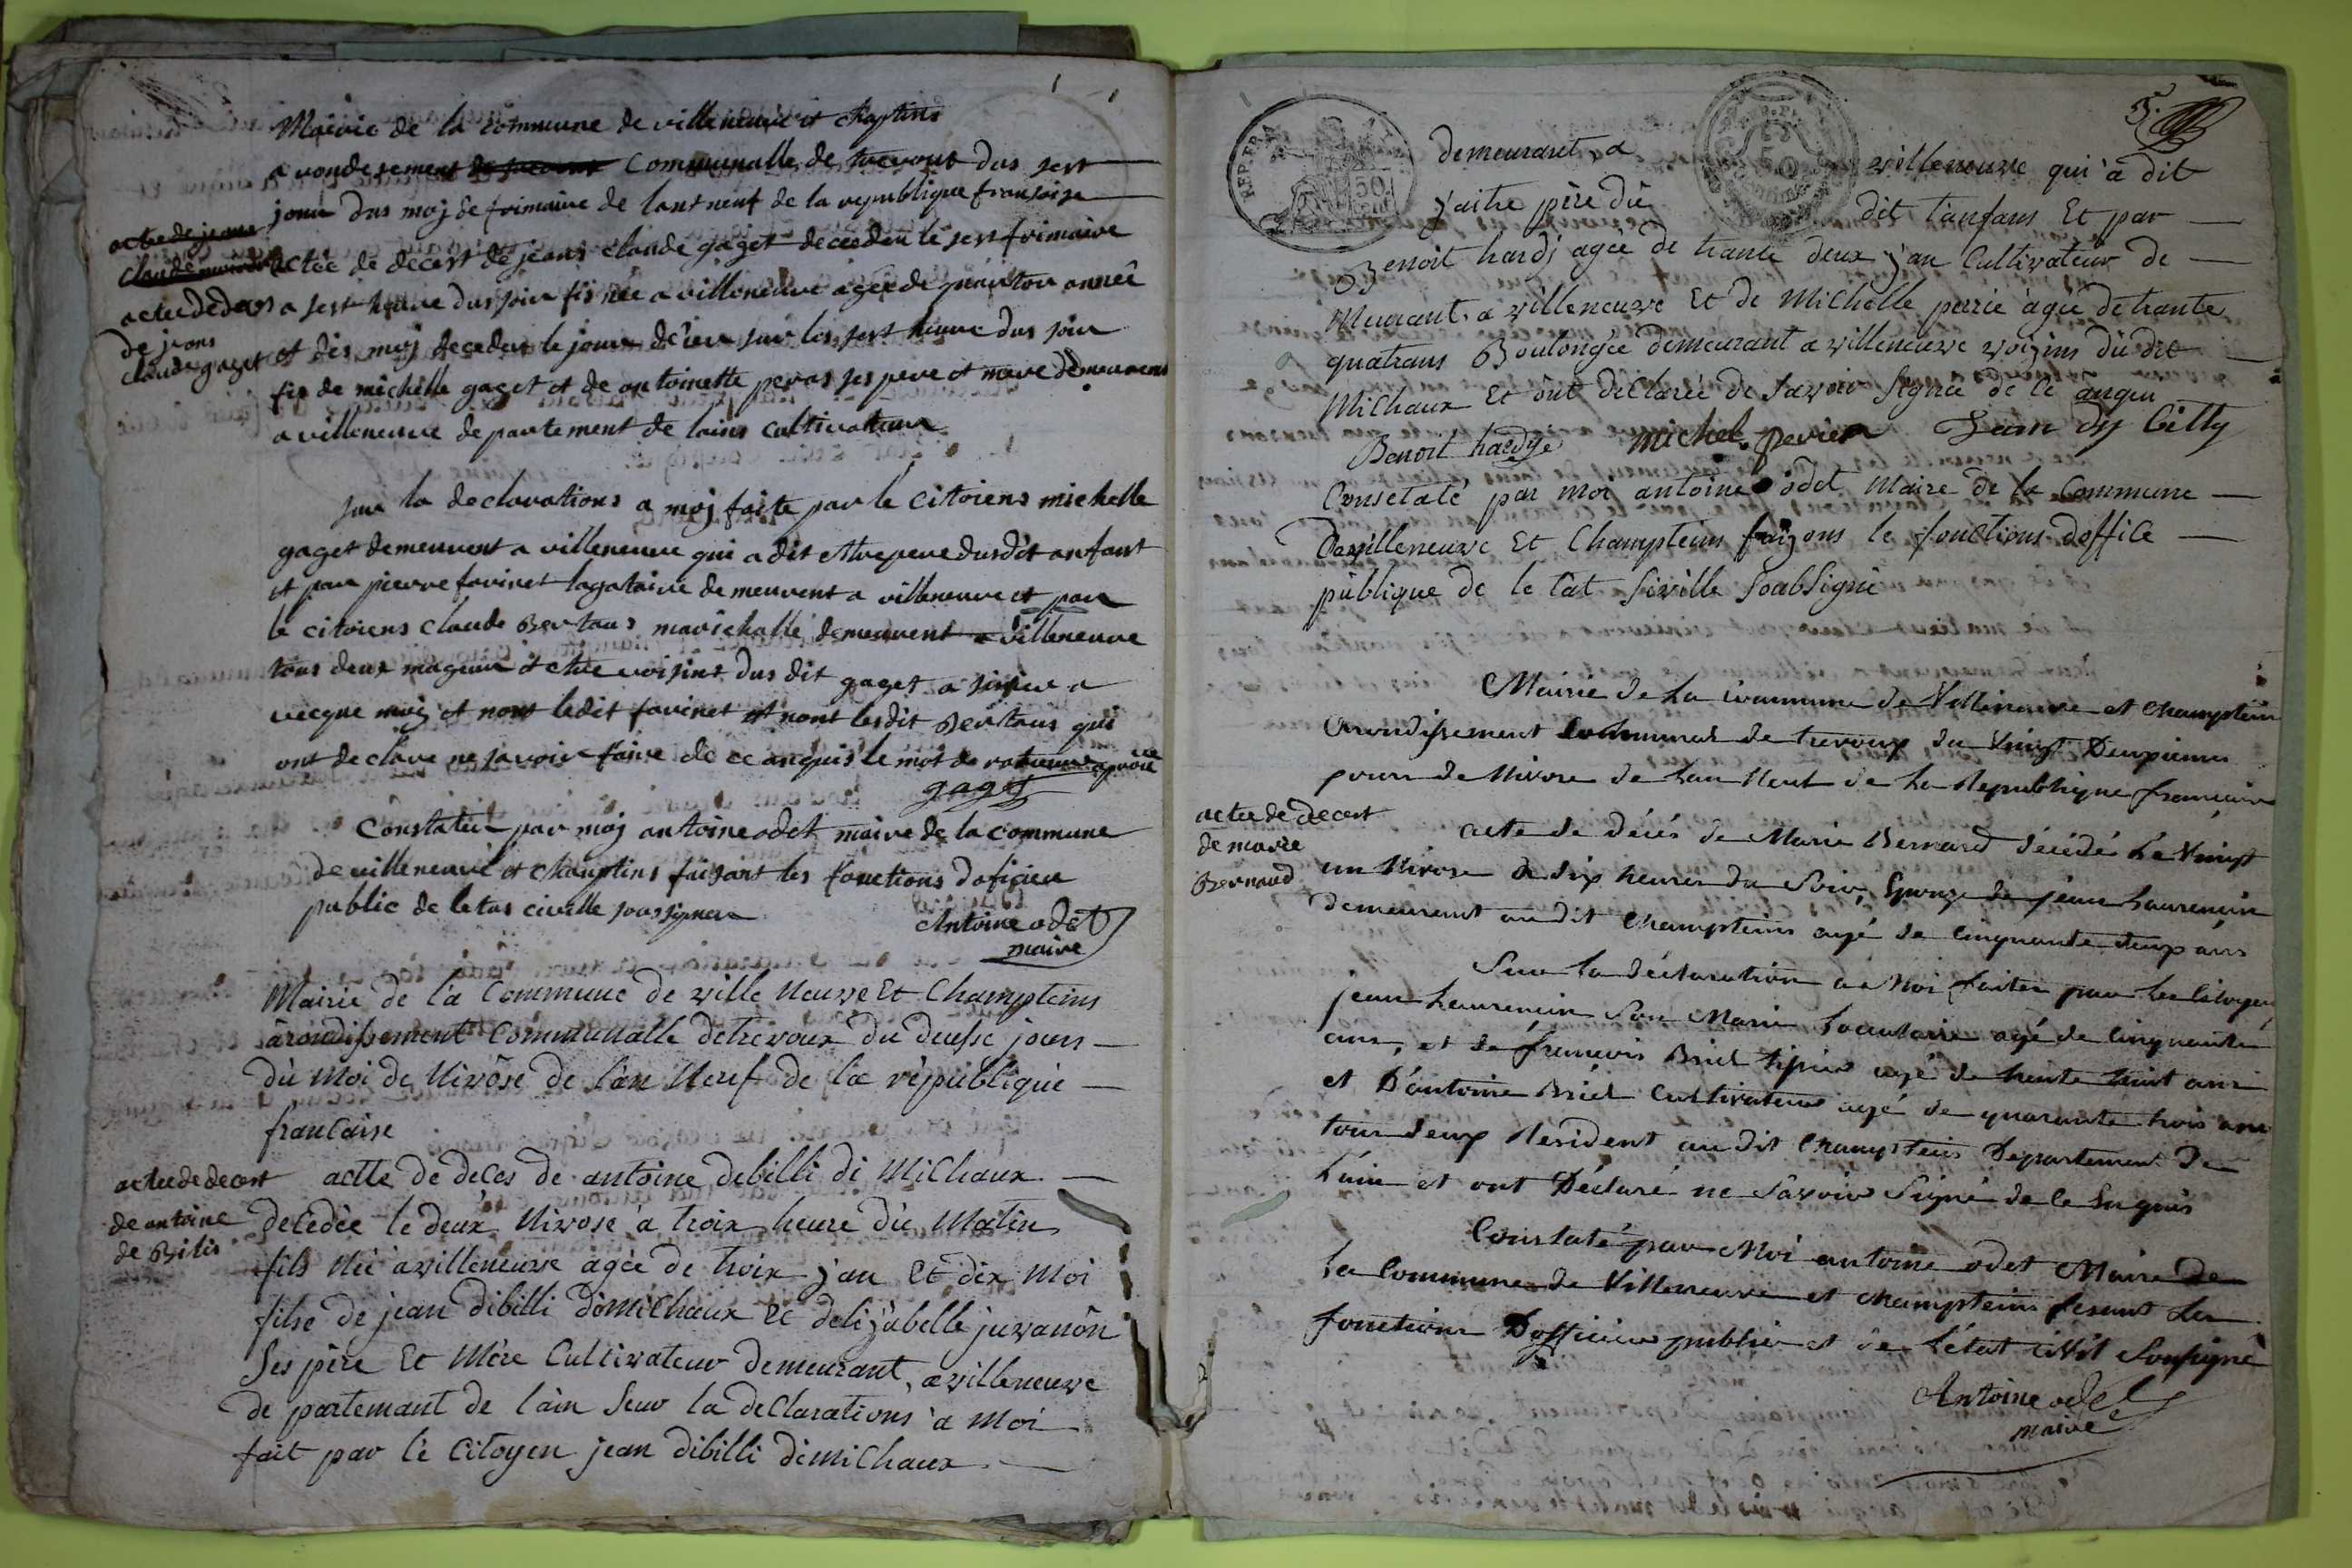 Mairie de la commune de villeneuve et chaptins
arondesement de trevout Communalle de trevout dus sest
jour dus moj de frimaire de lant neuf de la republique fransoise
acte de jeans
claude
actée de decest de jeans claude gaget decedeu le sest frimaire
actee de deces
a sest heure dus soir fis née a villeneuve agée de quautor année
de jeans
claude gaget
et dis moj decedeu le jour deier sur les sest heure dus soir
fis de michelle gaget et de antoinette peras ses pere et mere demeurens
a villeneuve departement de lains cultivateur
sur la declarations a moj faite par le citoiens michelle
gaget demeurent a villeneuve qui a dit etre pere dus dit anfant
et par pierre favinet lagataire demeurent a villeneuve et par
le citoiens claude Bertaus marichalle demeurent a villeneuve
tous deux mageur et etre voisins dus dit gaget a sinieu a
vecque moj et nont ledit favinet et nont lesdit Bertaus qui
ont declare ne savoir faire de ce anquis le mot de
gaget
Constateu par moj antoine odet maire de la commune
de villeneuve et chanptins faisant les fonctions dofisieu
public de letas civille soussigneu
Antoine odet
maire
Mairie de la Commune de ville Neuve Et Champteins
arondissement Communalle detrevoux du deusse jours
du Moi de Nivôse de l'an Neuf de la republique
francaise
actee de decest
de antoine
de Bilis
actte de deces de antoine debilli di Michaux
decedée le deux Nivose a troix heure du Matin
fils Née a villeneuve agée de troix j'an Et dix Moi
filse de jean dibilli dimichaux Et delizabelle juvanon
Ses père Et Mère Cultivateur demeurant a villeneuve
de partemant de l'ain Seur la declarations a Moi
fait par le Citoyen jean dibilli dimichaux
5.
demeurant a villeneuve qui a dit
j'aitre père du dit l'anfans Et par
Benoit hardj agée de trante deux j'an Cultivateur de
Meurant a villeneuve Et de Michelle perié agée detrante
quatrans Boulongée demeurant a villeneuve voizins du dit
Michaux Et ont declarée de Savoir Signée de Ce anqui
Benoit hardye Michel perier Jean dy billy
Consetaté par moi antoine odet Maire de la Commune
Devilleneuve Et Champteins faizons le fonctions d'office
publique de le tat Siville Soabsigné
Mairie de La Commune de Villeneuve et Champtein
Arrondissement Communal de trevoux du Vingt Deuxieme
jour de Nivose de L'an Neuf de La Republique francaise
actee de decest
de marie
Bernard
acte de décés de Marie Bernard décédé Le Vingt
un Nivose à dix heures du Soir, Epouze de jean Laurencin
demeurent au dit Champteins agé de Cinquante deux ans
Sur la déclaration à Moi faites par Le Citoyen
jean Laurencin Son Mari Locataire agé de Cinquante
ans, et de francois Briel tipier agé de trente huit ans
et D'antoine Briel Cultivateur agé de quarante trois ans
tour deux Resident au dit Champteins Departement De
L'ain et ont Déclaré ne Savoir Signé de Ce Enquis
Constaté par Moi antoine odet Maire de
La Commune de Villeneuve et Champteins fesant Les
fonctions D'officier public et de L'état civil Sousigné
Antoine odet
maire